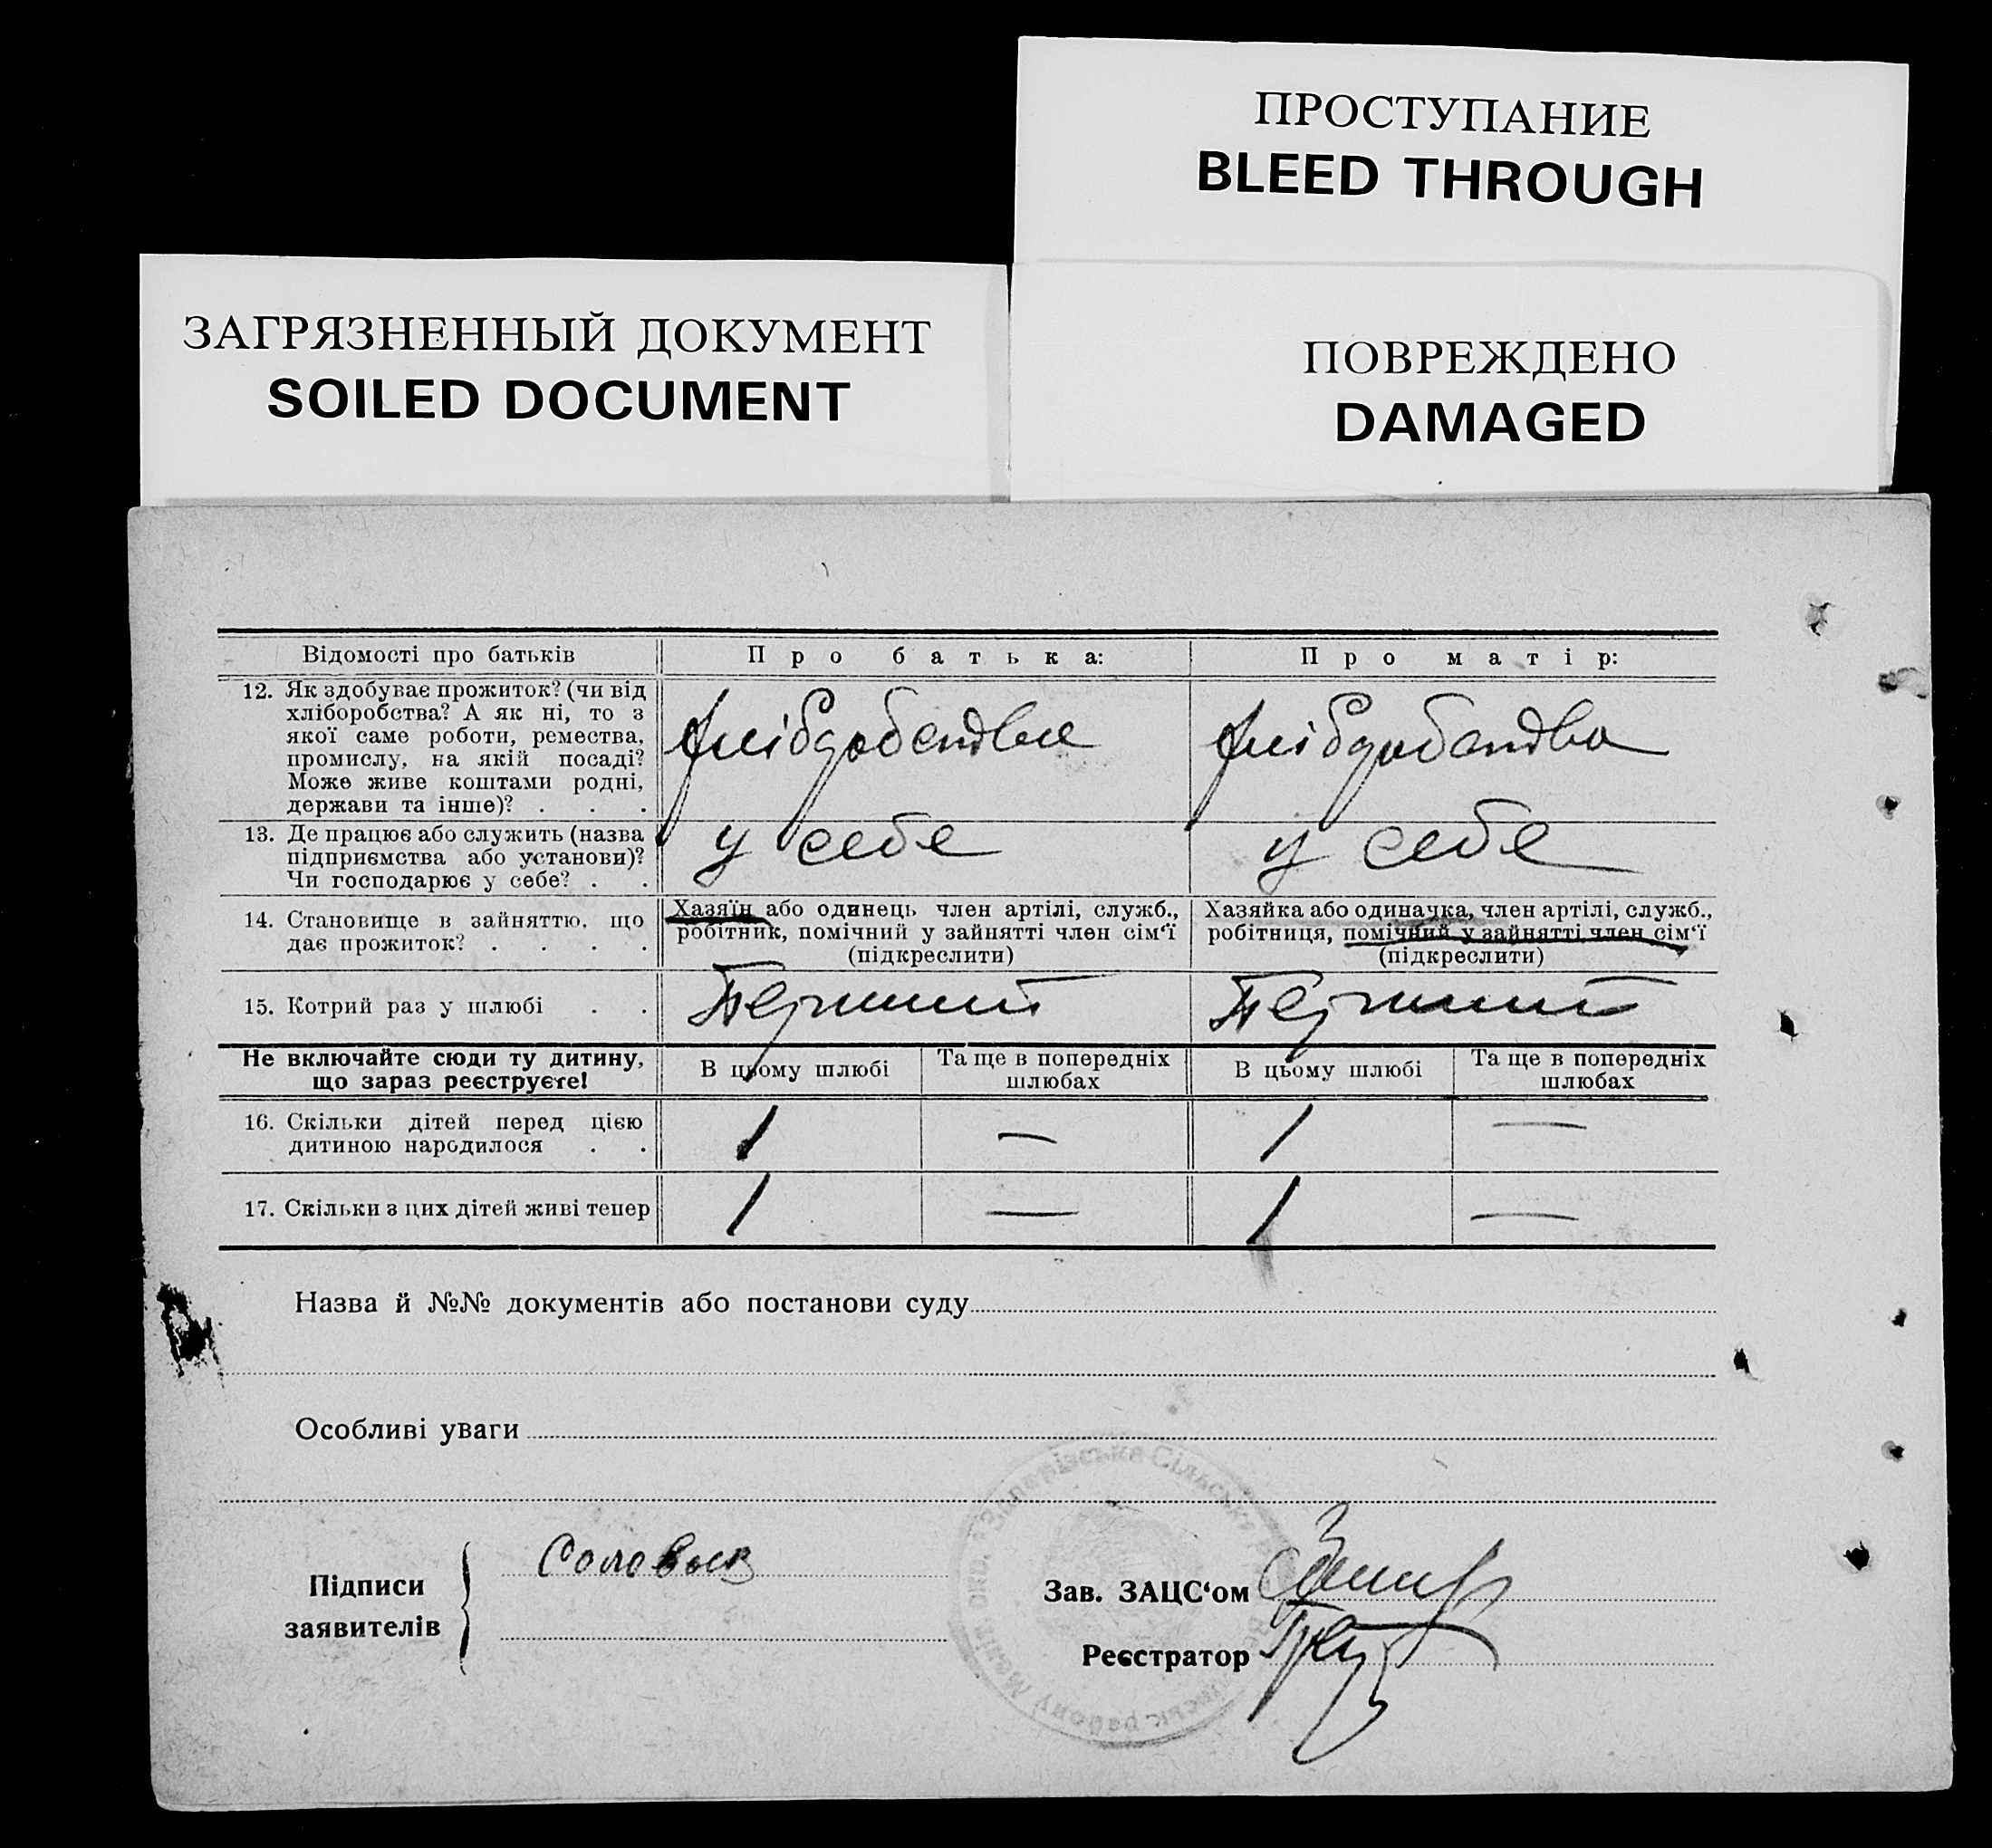 ПРОСТУПАНИЕ
BLEED THROUGH
ЗАГРЯЗНЕННЫЙ ДОКУМЕНТ
SOILED DOCUMENT
ПОВРЕЖДЕНО
DAMAGED
Відомості про батьків
Про батька:
Про матір:
12. Як здобуває прожиток? (чи від
хліборобства? А як ні, то з
якої саме роботи, ремества,
промислу, на якій посаді?
Може живе коштами родні,
держави та інше)? . . .
13. Де працює або служить (назва
підприємства або установи)?
Чи господарює у себе? . .
у себе
у себе
14. Становище в зайняттю, що
дає прожиток? . . . .
Хазяїн або одинець член артілі, служб.,
робітник, помічний у зайнятті член сім'ї
(підкреслити)
Хазяйка або одиначка, член артілі, служб.,
робітниця, помічний у зайнятті член сім'ї
(підкреслити)
15. Котрий раз у шлюбі . .
Перший
Перший
Не включайте сюди ту дитину,
що зараз реєструєте!
В цьому шлюбі
Та ще в попередніх
шлюбах
В цьому шлюбі
Та ще в попередніх
шлюбах
16. Скільки дітей перед цією
дитиною народилося . .
1 — 1 —
17. Скільки з цих дітей живі тепер
1 — 1 —
Назва й №№ документів або постанови суду
Особливі уваги
Підписи
заявителів
Соловьев
Зав. ЗАЦС'ом
Реєстратор